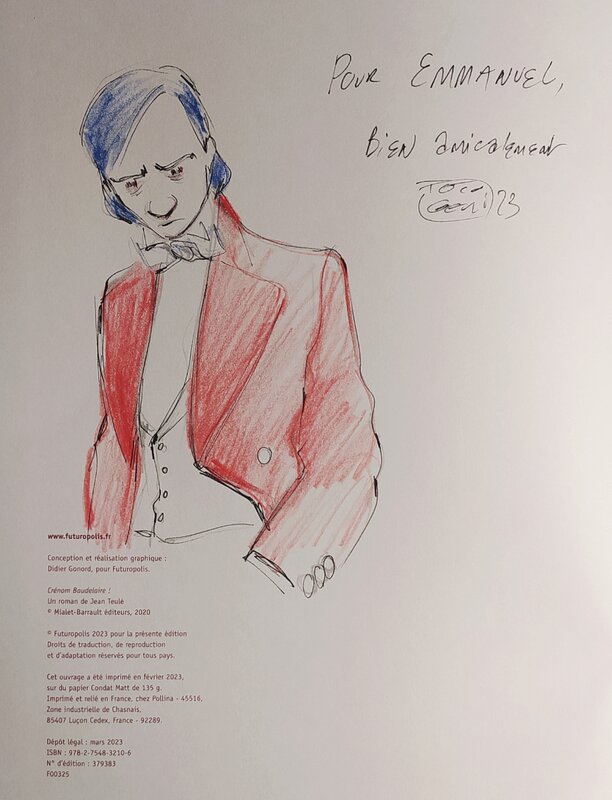 POUR EMMANUEL,
BIEN amicalement
23
www.futuropolis.fr
Conception et réalisation graphique :
Didier Gonord, pour Futuropolis.
Crénom Baudelaire !
Un roman de Jean Teulé
© Mialet-Barrault éditeurs, 2020
© Futuropolis 2023 pour la présente édition
Droits de traduction, de reproduction
et d'adaptation réservés pour tous pays.
Cet ouvrage a été imprimé en février 2023,
sur du papier Condat Matt de 135 g.
Imprimé et relié en France, chez Pollina - 45516,
Zone industrielle de Chasnais,
85407 Luçon Cedex, France - 92289.
Dépôt légal : mars 2023
ISBN : 978-2-7548-3210-6
N° d'édition : 379383
F00325